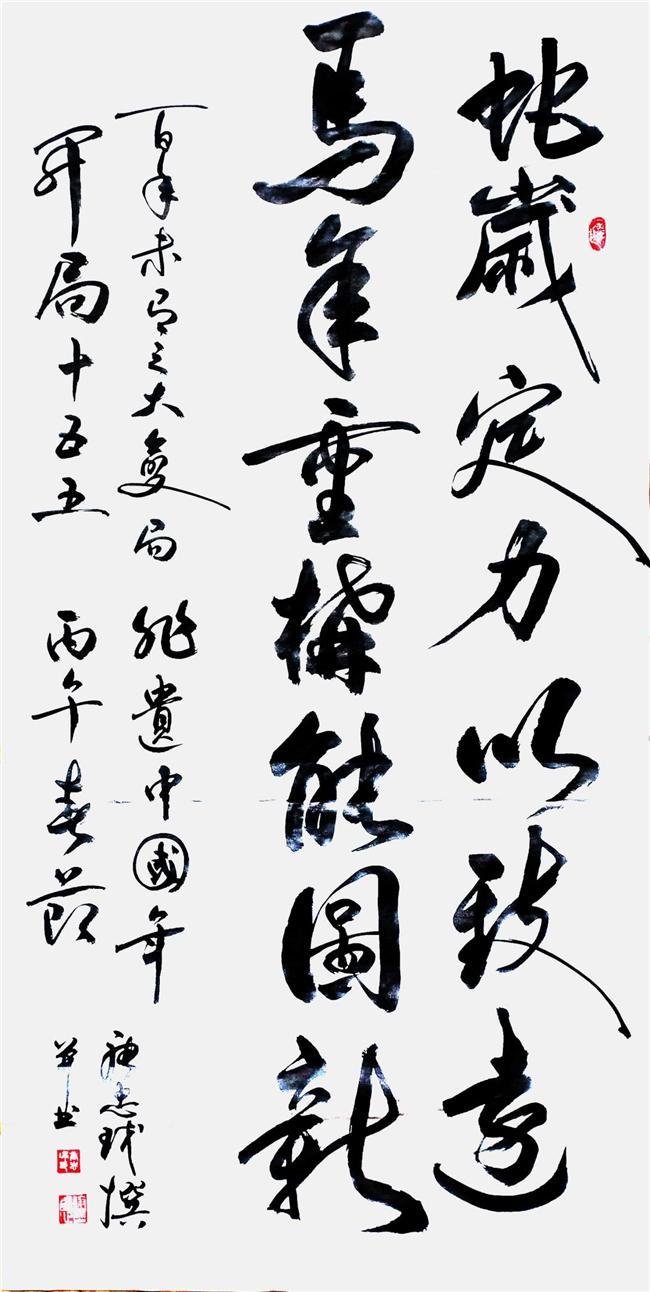 蛇歲定力以致遠
馬年重構能圖新
百年未有之大變局 非遺中國年
開局十五五 丙午春節
忠球撰
並書